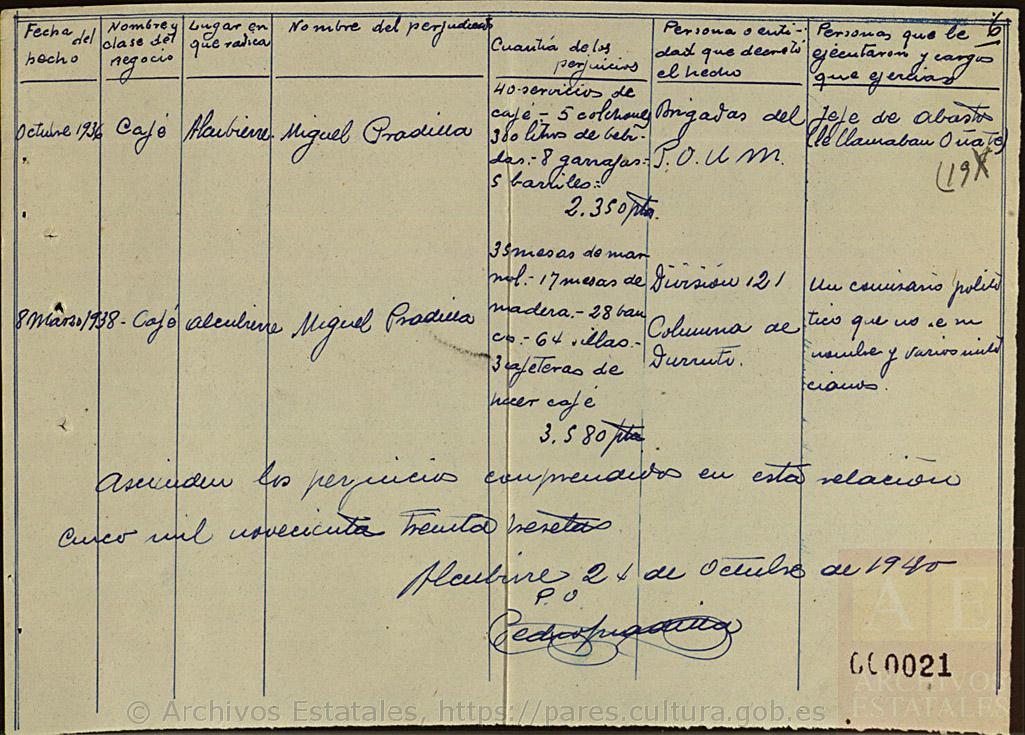 Fecha del hecho
Nombre y clase del negocio
Lugar en que radica
Nombre del perjudicado
Cuantía de los perjuicios
Persona o entidad que decretó el hecho
Personas que le ejecutaron y cargos que ejercian
6
Octubre 1936
Café
Alcubierre
Miguel Pradilla
40 servicios de
café - 5 colchones
300 litros de bebi-
das.- 8 garrafas:-
5 barriles:-
2.350 pta.
Brigadas del
P. O. U. M.
Jefe de abastos
(le llamaban Oñate)
(19
8 Marzo 1938 - Café
Alcubierre
Miguel Pradilla
35 mesas de mar
mol.- 17 mesas de
madera.- 28 ban
cos.- 64 sillas.-
3 cafeteras de
hacer café
3.580 pta
División 121
Columna de
Durruti.
Un comisario poli
tico que no se su
nombre y varios mili
cianos.
Ascienden los perjuicios comprendidos en esta relación
cinco mil novecienta treinta pesetas.
Alcubierre 24 de Octubre de 1940
P. O
Pedro Pradilla
000021
AE
ARCHIVOS
ESTATALES
© Archivos Estatales, https://pares.cultura.gob.es